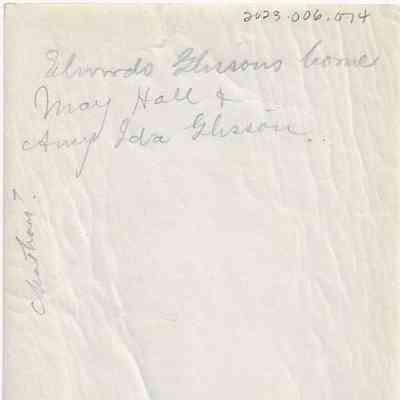 2023.006.074
Elwoods Glissons home
May Hall &
Amy Ida Glisson..
Chatham?